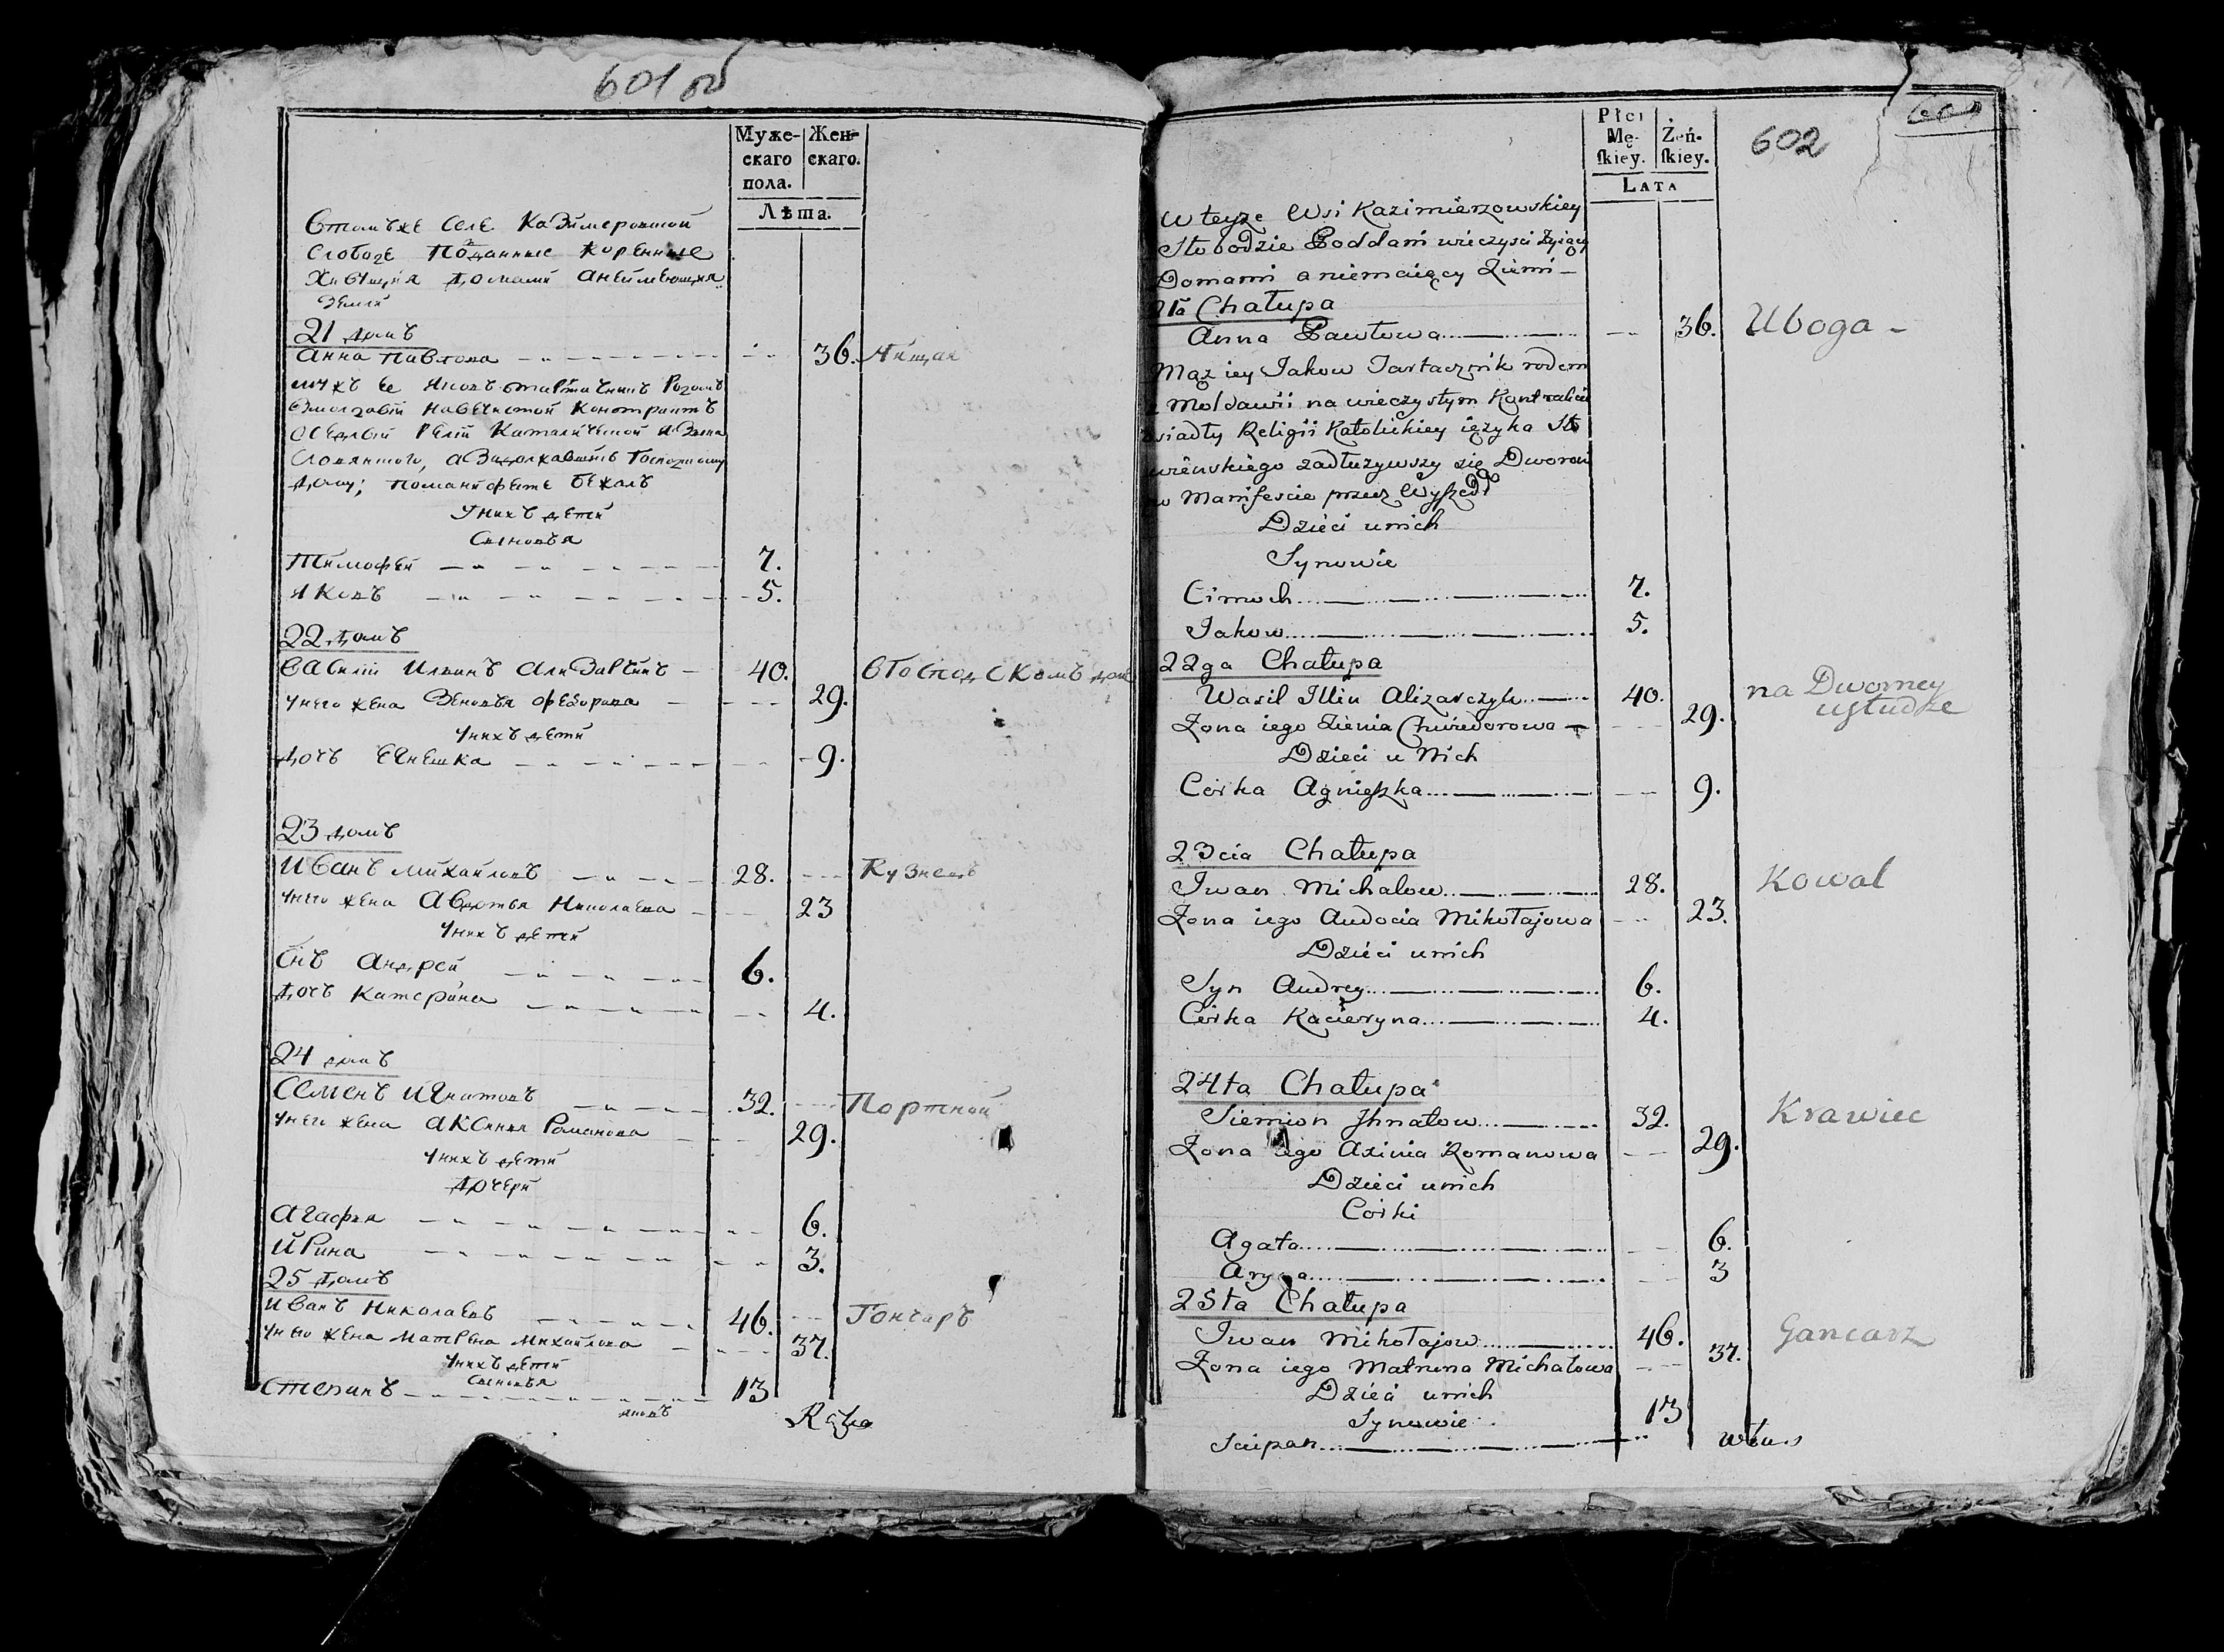 601 об
Муже- Жен-
скаго скаго.
пола.
Лѣта.
Втомъже селе Казимеровской
Слободе Подданные Коренные
Живущия домами анеимеющия
Земли
21 домъ
Анна павлова 36. Нищая
мужъ ее Яковъ
набечистой Контрактъ
оседлой Католической
Господскому
дому; поманифесте бежалъ
Унихъ дети
Сыновья
Тимофей 7.
Яковъ 5.
22 домъ
Василий Ильинъ 40. вГосподскомъ доме
унего жена Зеновья Федорова 29.
Унихъ дети
дочь Егнешка 9.
23 домъ
Иванъ Михайловъ 28. Кузнецъ
унего жена Авдотья Николаева 23
Унихъ дети
Снъ Андрей 6.
дочь Катерина 4.
24 домъ
Семенъ Игнатовъ 32. Портной
унего жена Аксинья Романова 29.
Унихъ дети
дочери
Агафья 6.
Ирина 3.
25 домъ
Иванъ Николаевъ 46. Гончаръ
унего жена Матрена Михайлова 37.
Унихъ дети
Сыновья
Степанъ 13
602
Płci
Mę- Żeń-
skiey. skiey.
LATA
W teyże Wsi Kazimierzowskiey
Słobodzie Poddani wieczyści żyiący
Domami a niemaiący Ziemi
21a Chałupa
Anna Pawłowa 36. Uboga
Mąż iey Jakow Tartacznik rodem
z Moldawii na wieczystym Kontrakcie
osiadły Religii Katolickiey ięzyka Sło
wieńskiego zadłużywszy się Dworowi
po Manifescie przez Wyszedł
Dzieci unich
Synowie
Cimoch 7.
Jakow 5.
22ga Chałupa
Wasil Illin Alizarczyk 40. na Dworney
usłudze
Żona iego Zienia Chwiedorowa 29.
Dzieci u Nich
Córka Agnieszka 9.
23cia Chałupa
Iwan Michałow 28. Kowal
Żona iego Audocia Mikołajowa 23.
Dzieci unich
Syn Andrey 6.
Córka Kacieryna 4.
24ta Chałupa
Siemion Ihnatow 32. Krawiec
Żona iego Axinia Romanowa 29.
Dzieci unich
Córki
Agata 6.
Aryna 3
25ta Chałupa
Iwan Mikołajow 46. Gancarz
Żona iego Matruna Michałowa 37.
Dzieci unich
Synowie
Sciepan 13